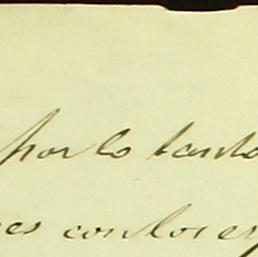 por lo tanto
es con los es